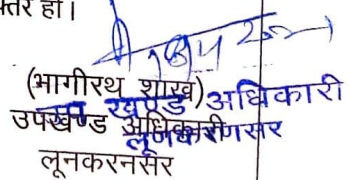 तर हो।
(भागीरथ शाख)
उप खण्ड अधिकारी
लूणकरणसर
उपखण्ड अधिकारी
लूनकरनसर